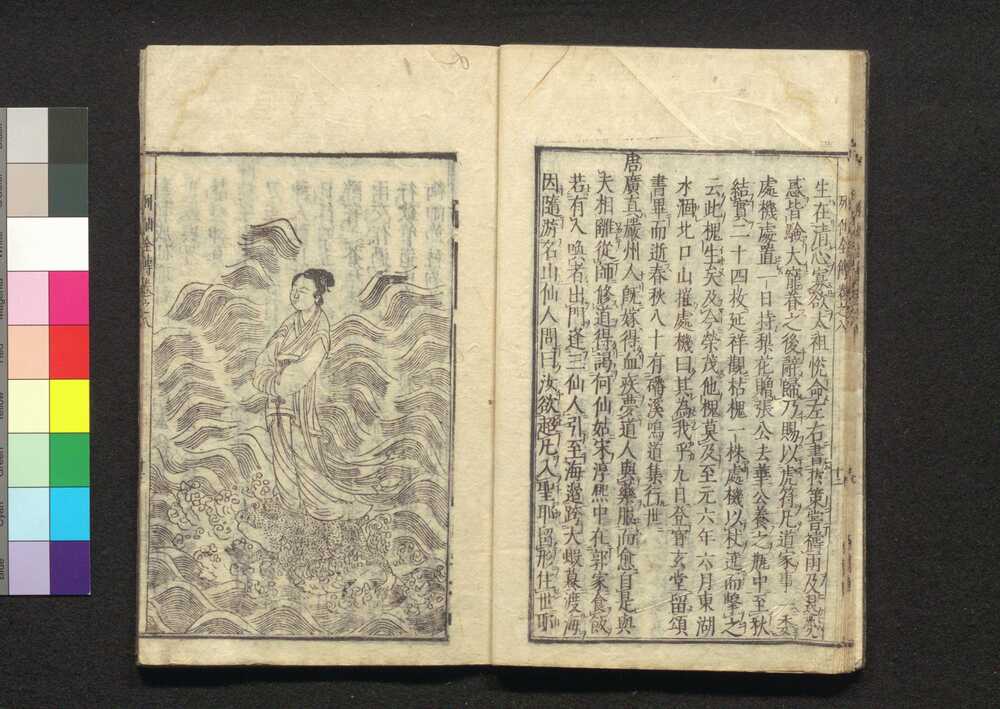 生在清心寡欲太祖悅命左右書於策嘗禱雨及退熒
惑皆驗大寵眷之後辭歸乃賜以虎符凡道家事一委
處機處置一日持梨花贈張公去華公養之瓶中至秋
結實二十四枚延祥觀枯槐一株處機以杖逆而擊之
云此槐生矣及今榮茂他槐莫及至元六年六月東湖
水涸北口山摧處機曰其為我乎九日登寶玄堂留頌
書畢而逝春秋八十有磻溪鳴道集行世
唐廣真嚴州人既嫁得血疾夢道人與藥服而愈自是與
夫相離從師修道得謁何仙姑宋淳熙中在郭家食飯
若有人喚者出門逢三仙人引至海邊跨大蝦蟇渡海
因隨游名山仙人問曰汝欲超凡入聖耶留形住世耶
列仙全傳卷之八